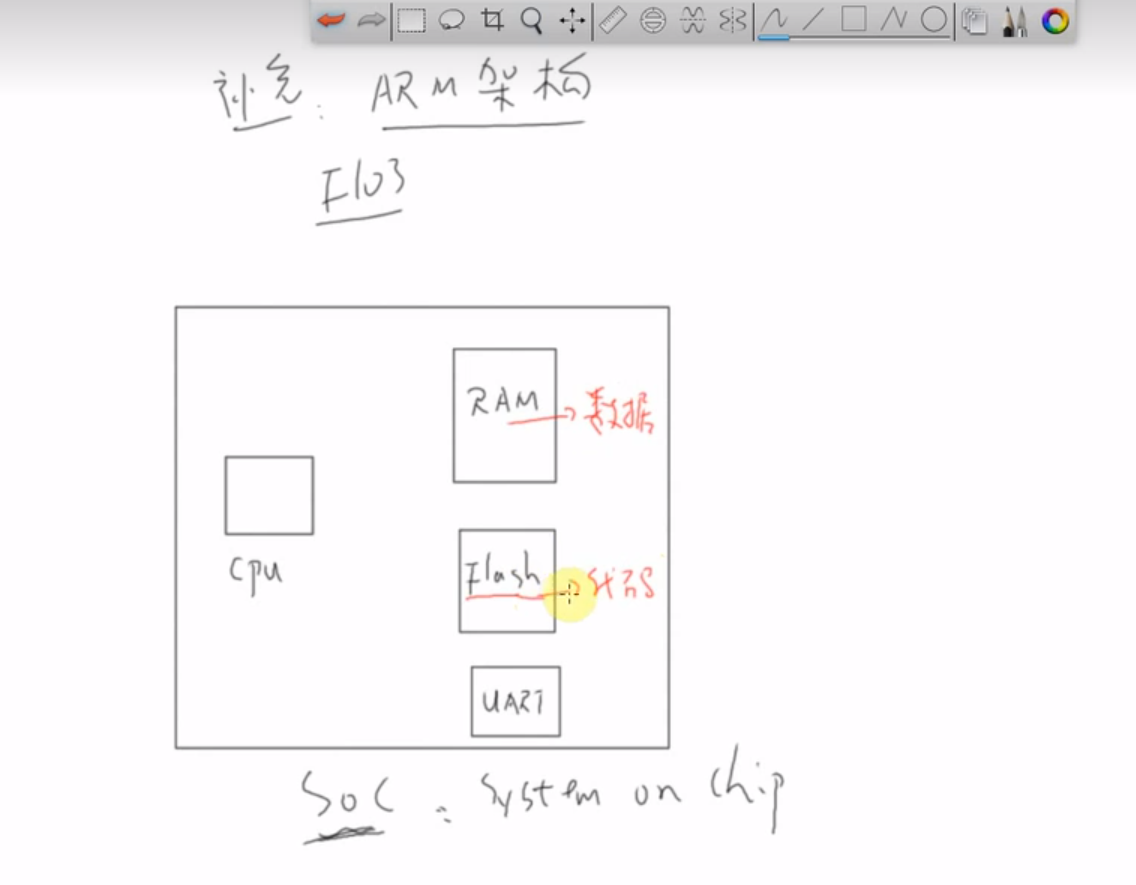 补充: ARM架构
F103
RAM → 数据
CPU
Flash → 代码
UART
SoC: System on chip